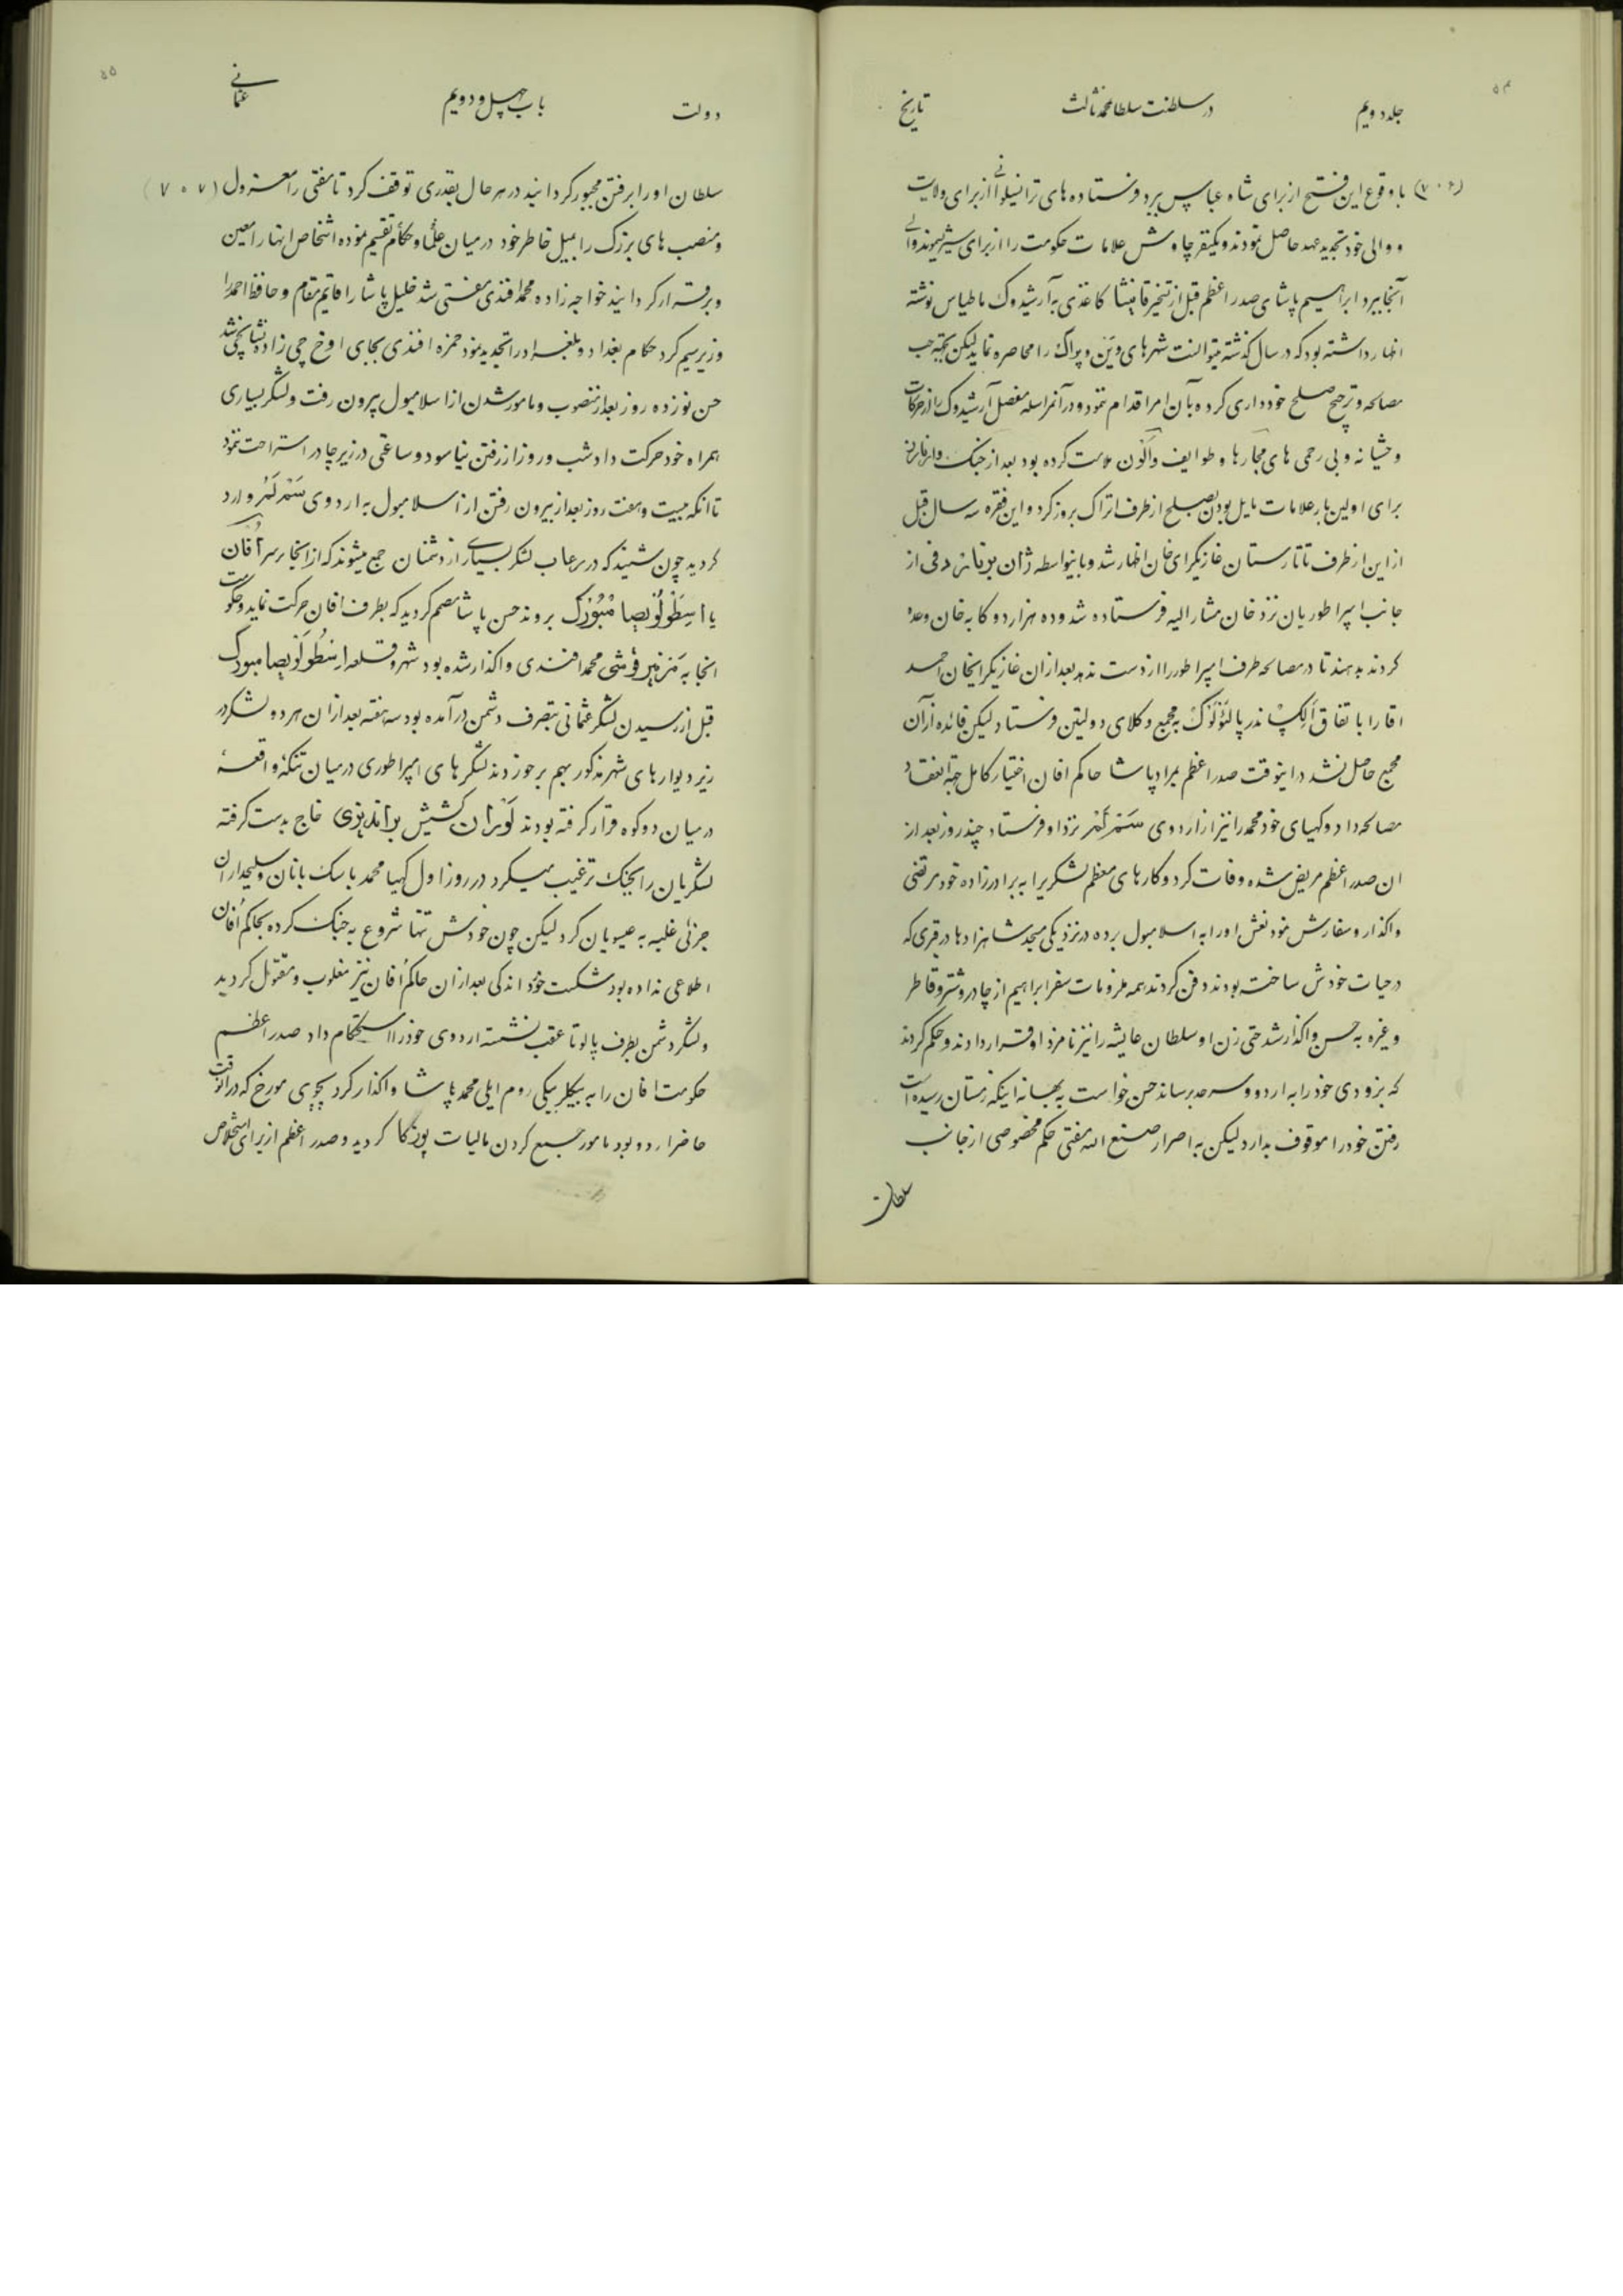 ۵۴
جلد دویم در سلطنت سلطان محمد ثالث تاریخ
(۷۰۶) با وقوع این فتح از برای شاه عباس ببرد و فرستاده های ترانسیلوانی از برای ولایت
و والی خود تجدید عهد حاصل نمودند و یکنفر چاوش علامات حکومت را از برای والی
آنجا ببرد ابراهیم پاشای صدر اعظم قبل از تسخیر قانیشا کاغذی به آرشیدوک ماطیاس نوشته
اظهار داشته بود که در سال گذشته میتوانست شهرهای وین و پراک را محاصره نماید لیکن بجهة حب
مصالحه و ترجیح صلح خودداری کرده بآن امر اقدام ننمود و در آن مراسله مفصل آرشیدوک را از حرکات
وحشیانه و بی رحمی های مجارها و طوایف والون ملامت کرده بود بعد از جنک
برای اولین بار علامات مایل بودن بصلح از طرف اتراک بروز کرد و این فقره سه سال قبل
از این از طرف تاتارستان غازیکرای خان اظهار شد و باینواسطه ژان از
جانب امپراطور بان نزد خان مشار الیه فرستاده شد و ده هزار دوکا به خان وعده
کردند بدهند تا در مصالحه طرف امپراطور را از دست ندهد بعد از آن غازیکرای خان احمد
اقا را با تفاق الکساندر پالئولوک به مجمع وکلای دولتین فرستاد لیکن فائده از آن
مجمع حاصل نشد در اینوقت صدر اعظم بمراد پاشا حاکم افان اختیار کامل جهة انعقاد
مصالحه داد و کهیای خود محمد را نیز از اردوی سمندر نزد او فرستاد چند روز بعد از
ان صدر اعظم مریض شده وفات کرد و کارهای معظم لشکری را به برادرزاده خود مرتضی
واگذار و سفارش نمود نعش او را به اسلامبول برده در نزدیکی مسجد شاهزادها در قبری که
در حیات خودش ساخته بودند دفن کردند همه ملزومات سفر ابراهیم از چادر و شتر و قاطر
و غیره به حسن واگذار شد حتی زن او سلطان عایشه را نیز نامزد او قرار دادند و حکم کردند
که بزودی خود را به اردو و سرحد برساند حسن خواست به بهانه اینکه زمستان رسیده است
رفتن خود را موقوف بدارد لیکن به اصرار صنع الله مفتی حکم مخصوصی از جانب
سلطان
۵۵
دولت باب چهل و دویم عثمانی
سلطان او را برفتن مجبور گردانید در هر حال بقدری توقف کرد تا مفتی را معزول (۷۰۷)
و منصب های بزرگ را بمیل خاطر خود در میان علما و حکام تقسیم نموده اشخاص اینها را معین
و برقرار گردانید خواجه زاده محمد افندی مفتی شد خلیل پاشا را قایم مقام و حافظ احمد را
وزیر سیم کرد حکام بغداد و بلغراد را تجدید نمود حمزه افندی بجای اوخ چی زاده نشانچی شد
حسن نوزده روز بعد از منصوب و مامور شدن از اسلامبول بیرون رفت و لشکر بسیاری
همراه خود حرکت داد شب و روز از رفتن نیاسود و ساعتی در زیر چادر استراحت ننمود
تا آنکه بیست و هفت روز بعد از بیرون رفتن از اسلامبول به اردوی سمندر وارد
گردید چون شنید که در رعاب لشکر بسیاری از دشمنان جمع میشوند که از آنجا بر سر افان
یا اسطولویصامبورک بروند حسن پاشا مصمم گردید که بطرف افان حرکت نماید و حکومت
انجا به محمد افندی واگذار شده بود شهر و قلعه اسطولویصامبورک
قبل از رسیدن لشکر عثمانی بتصرف دشمن در آمده بود سه هفته بعد از آن هر دو لشکر در
زیر دیوارهای شهر مذکور بهم برخوردند لشکرهای امپراطوری در میان تنگه واقعه
در میان دو کوه قرار گرفته بودند لوران کشیش برانذیزی خاج بدست گرفته
لشکریان را بجنگ ترغیب میکرد در روز اول کهیا محمد با سک بانان و سلیحداران
جزئی غلبه به عیسویان کرد لیکن چون خودش تنها شروع به جنک کرده بحاکم افان
اطلاعی نداده بود شکست خورد اندکی بعد از آن حاکم افان نیز مغلوب و مقتول گردید
و لشکر دشمن بطرف پالوتا عقب نشسته اردوی خود را استحکام داد صدر اعظم
حکومت افان را به بیکلربیکی روم ایلی محمد پاشا واگذار کرد پچوی مورخ که در آنوقت
حاضر اردو بود مامور جمع کردن مالیات پوزگا گردید و صدر اعظم از برای استخلاص